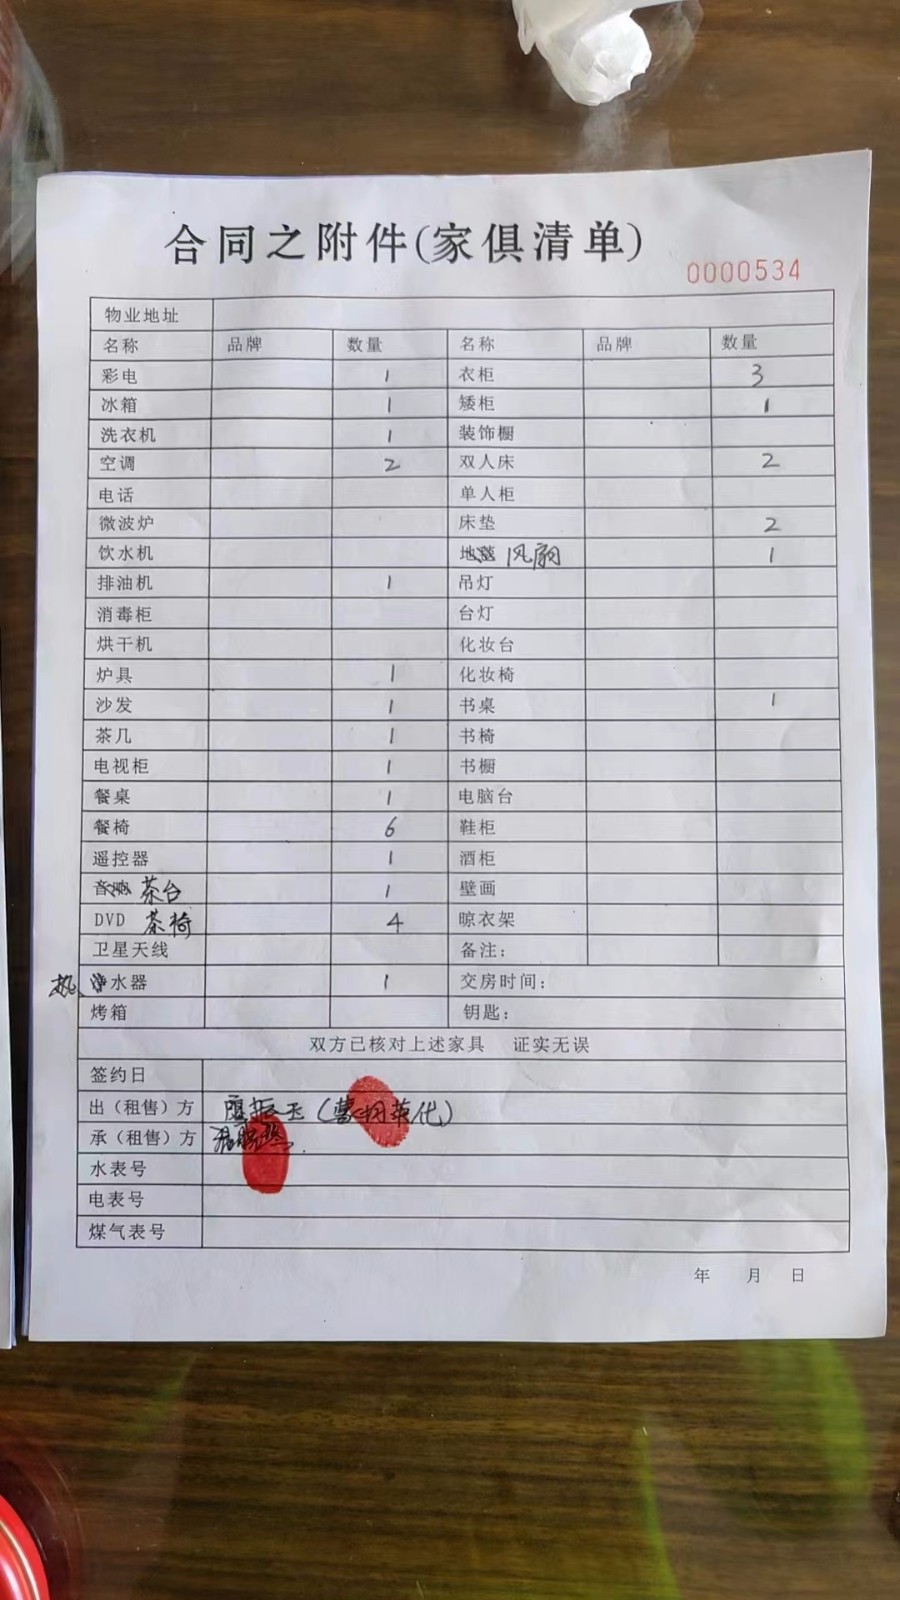 合同之附件(家俱清单)
0000534
物业地址
名称 品牌 数量 名称 品牌 数量
彩电 1 衣柜 3
冰箱 1 矮柜 1
洗衣机 1 装饰橱
空调 2 双人床 2
电话 单人柜
微波炉 床垫 2
饮水机 地毯 风扇 1
排油机 1 吊灯
消毒柜 台灯
烘干机 化妆台
炉具 1 化妆椅
沙发 1 书桌 1
茶几 1 书椅
电视柜 1 书橱
餐桌 1 电脑台
餐椅 6 鞋柜
遥控器 1 酒柜
茶台 1 壁画
DVD 茶椅 4 晾衣架
卫星天线 备注:
热 净水器 1 交房时间:
烤箱 钥匙:
双方已核对上述家具 证实无误
签约日
出（租售）方
承（租售）方
水表号
电表号
煤气表号
年 月 日